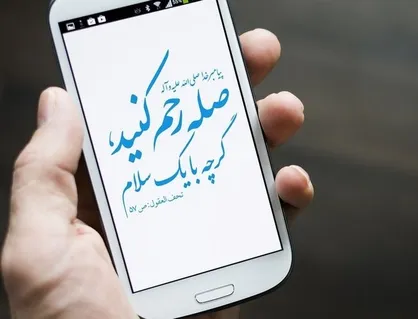 پیامبر خدا صلی الله علیه و آله
صله رحم کنید،
گرچه با یک سلام
تحف العقول: ص ۵۷